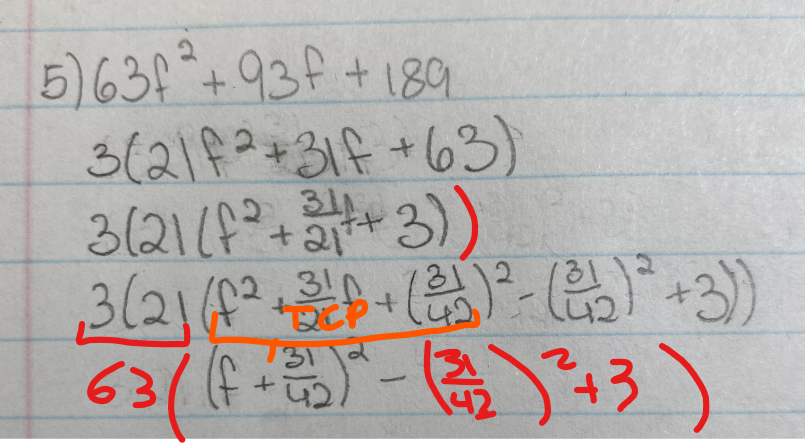 5) 63f² + 93f + 189
3(21f² + 31f + 63)
3(21(f² + 31/21 f + 3))
3(21(f² + 31/21 f + (31/42)² - (31/42)² + 3))
TCP
63((f + 31/42)² - (31/42)² + 3)